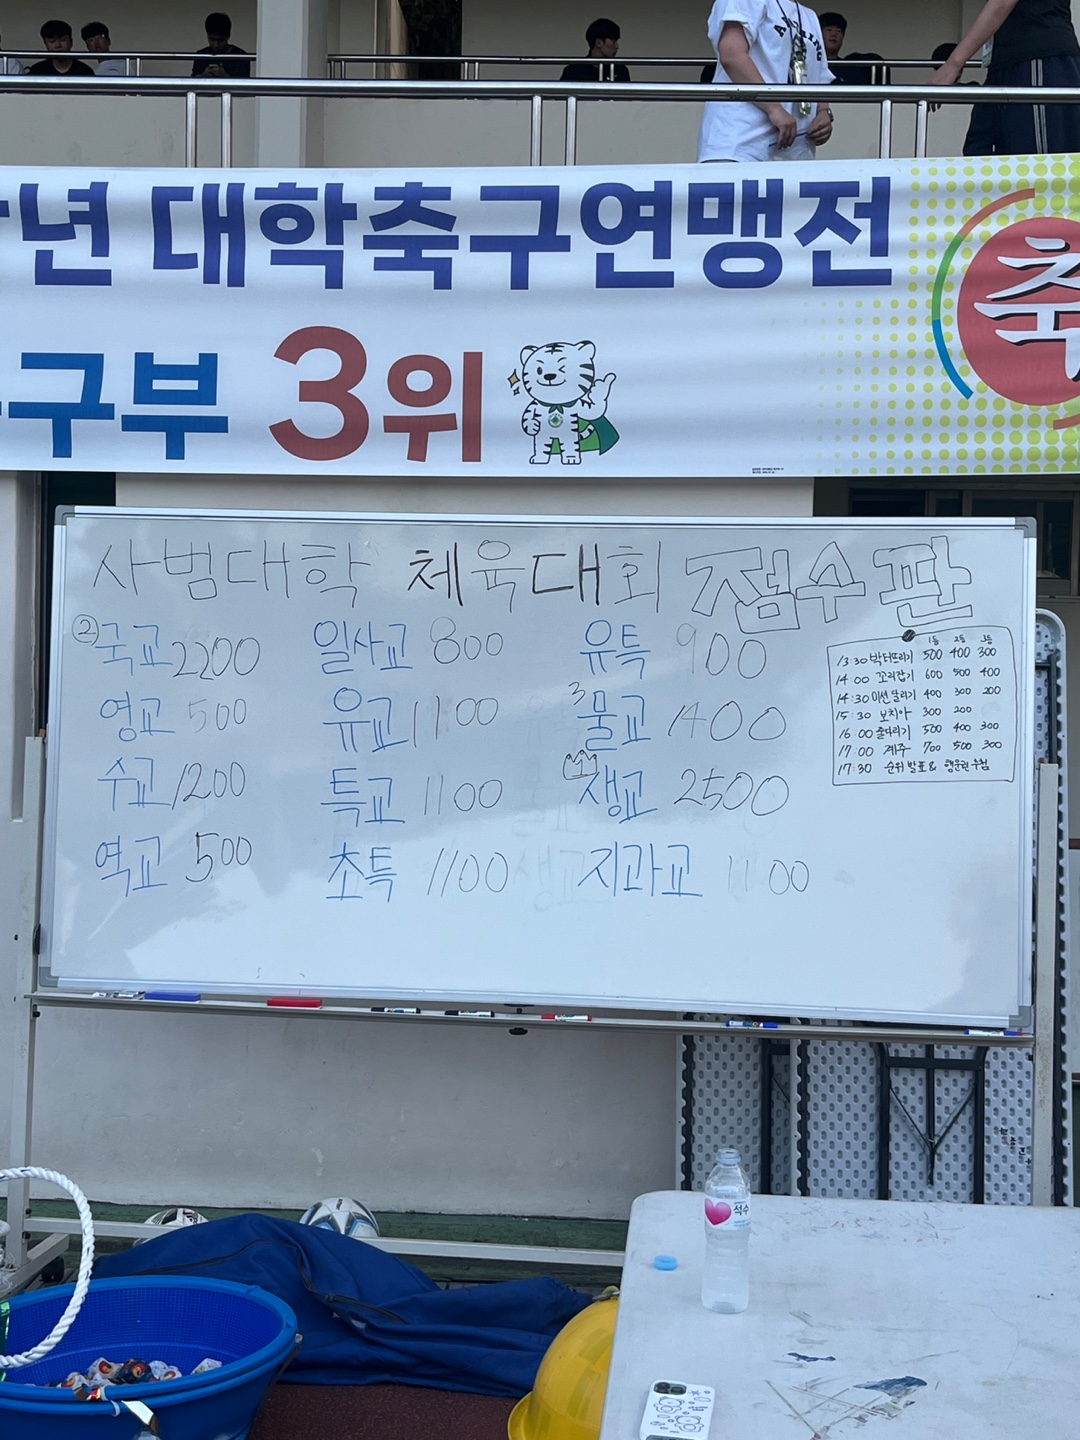 년 대학축구연맹전
구부 3위
축
사범대학 체육대회 점수판
② 국교 2200 일사교 800 유특 900
영교 500 유교 1100 3 물교 1400
수교 1200 특교 1100 생교 2500
역교 500 초특 1100 지과교 1100
1등 2등 3등
13:30 박터뜨리기 500 400 300
14:00 꼬리잡기 600 500 400
14:30 미션달리기 400 300 200
15:30 보치아 300 200
16:00 줄다리기 500 400 300
17:00 계주 700 500 300
17:30 순위발표 & 행운권추첨
석수